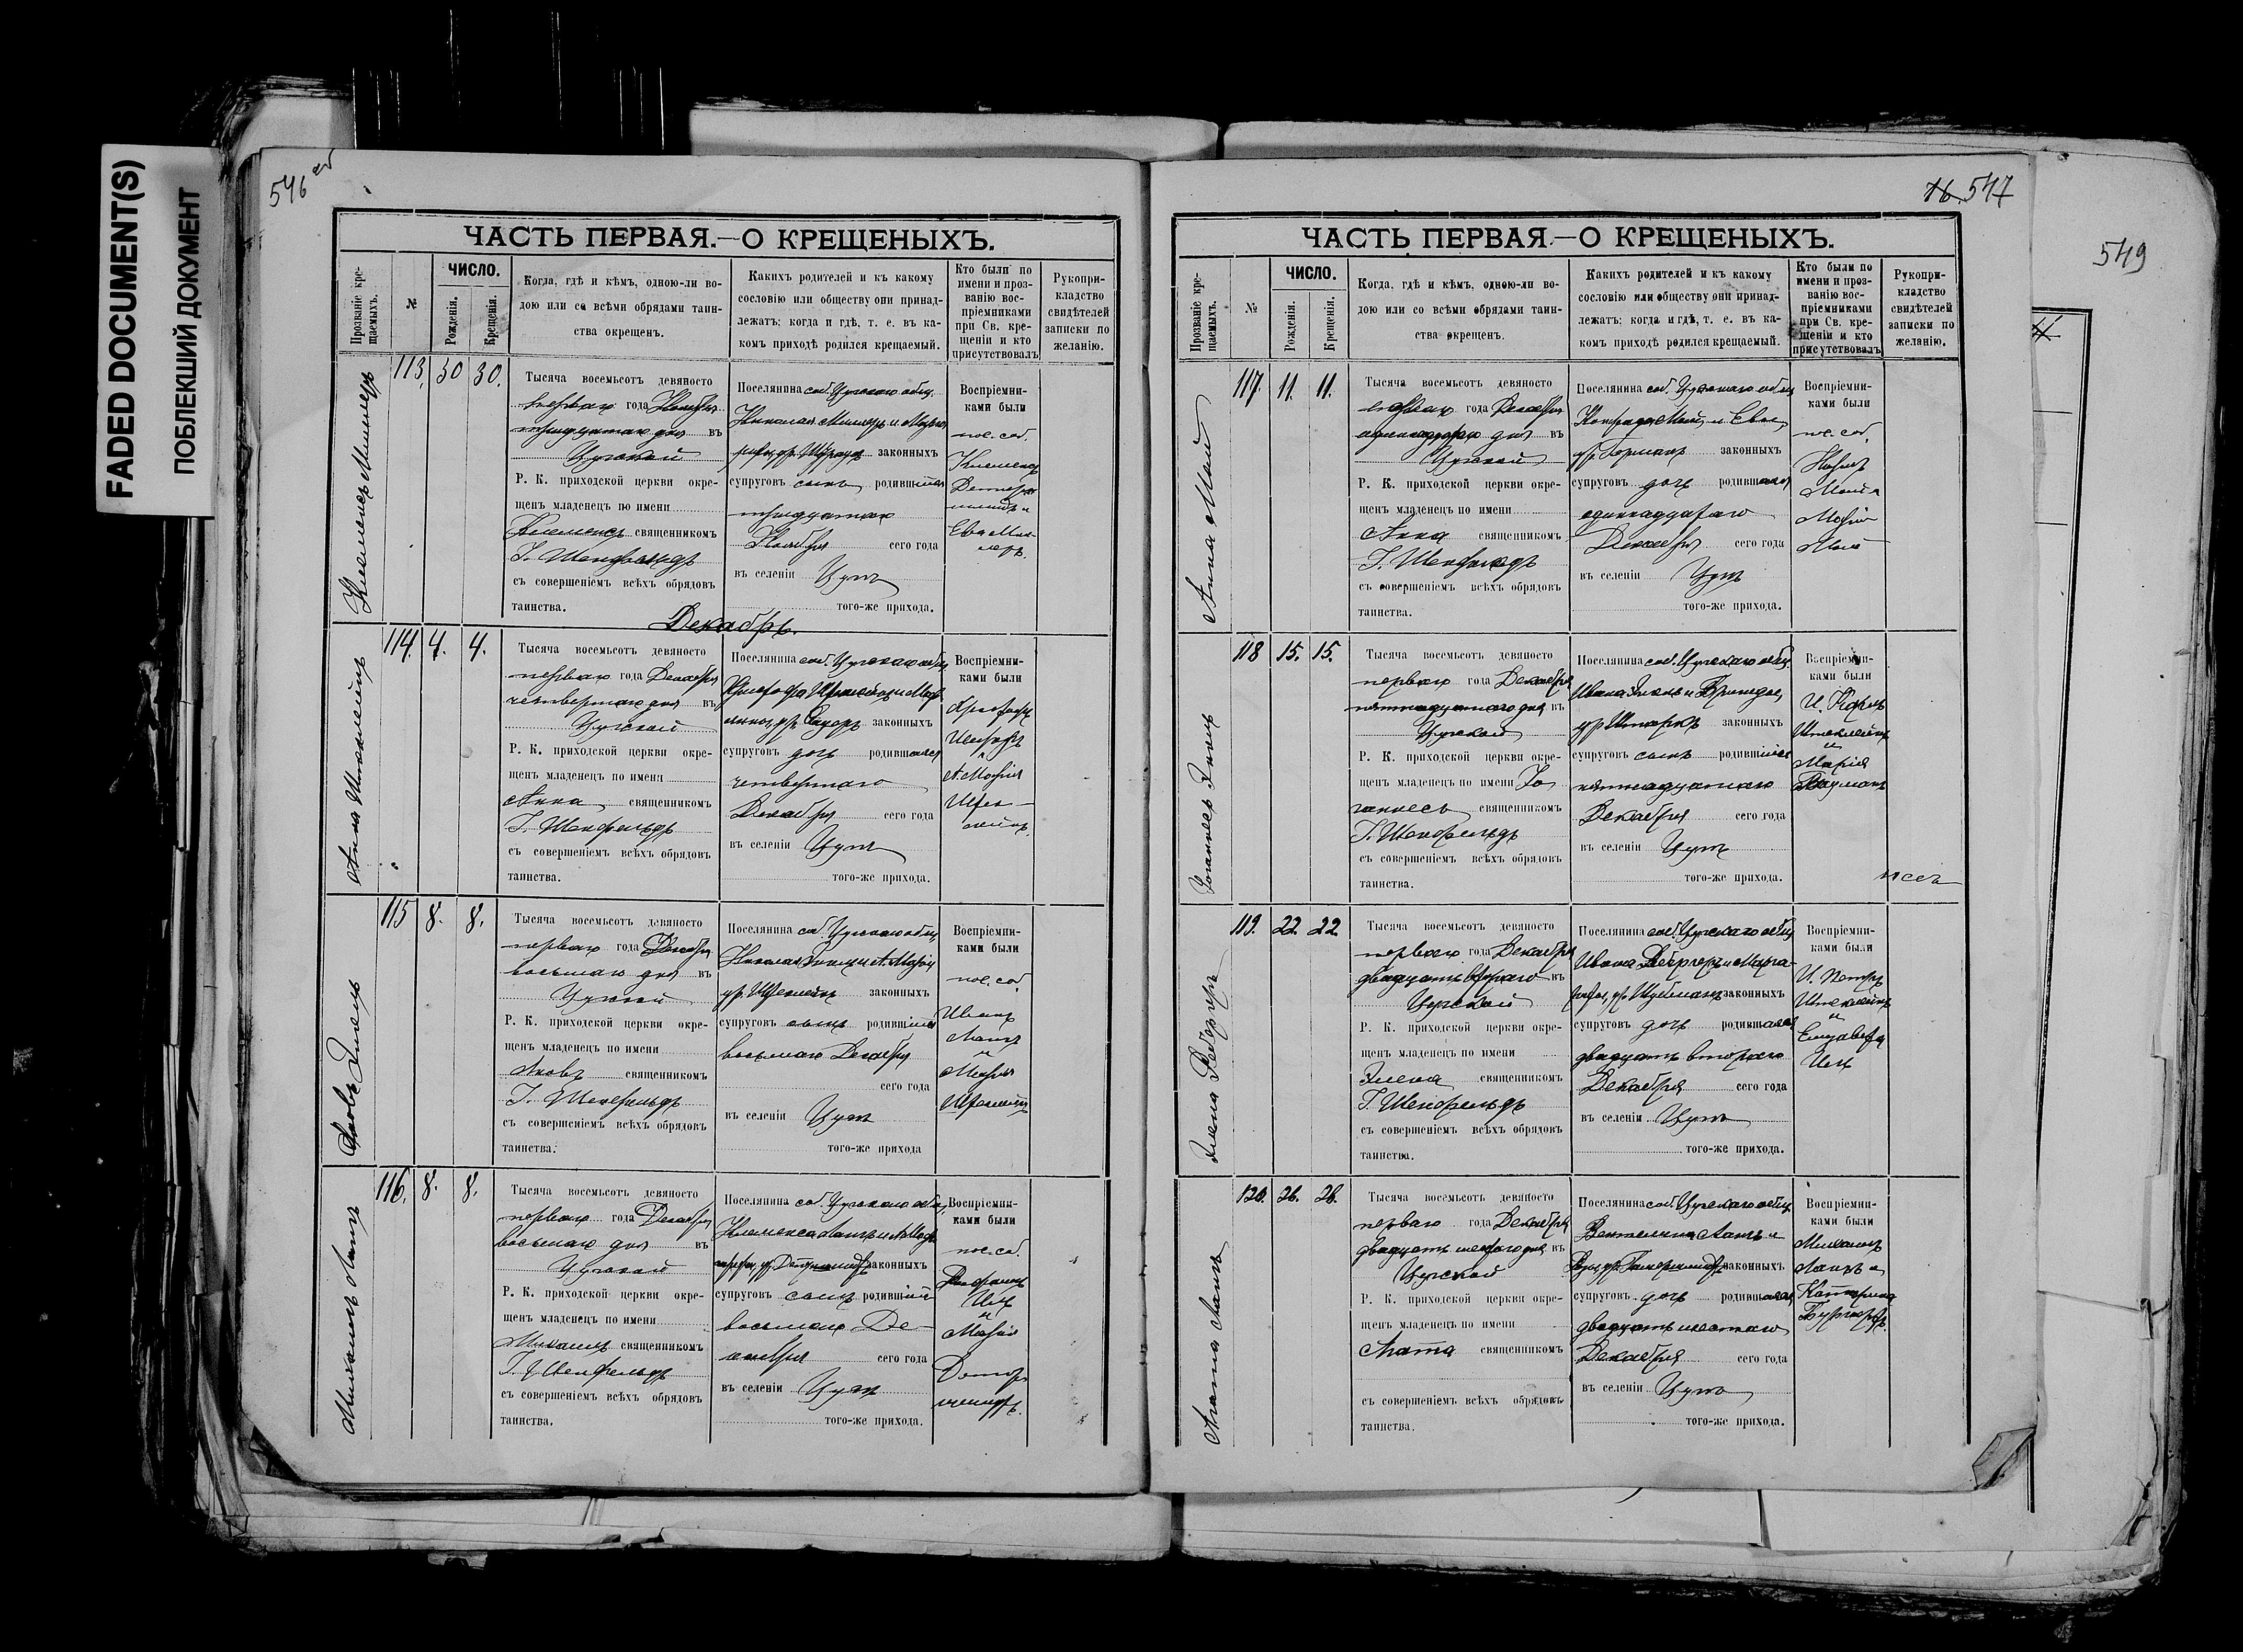 FADED DOCUMENT(S)
ПОБЛЕКШИЙ ДОКУМЕНТ
546 об
ЧАСТЬ ПЕРВАЯ.—О КРЕЩЕНЫХЪ.
Прозваніе кре-
щаемыхъ.
№
ЧИСЛО.
Рожденія.
Крещенія.
Когда, гдѣ и кѣмъ, одною-ли во-
дою или со всѣми обрядами таин-
ства окрещенъ.
Какихъ родителей и къ какому
сословію или обществу они принад-
лежатъ; когда и гдѣ, т. е. въ ка-
комъ приходѣ родился крещаемый.
Кто были по
имени и проз-
ванію вос-
пріемниками
при Св. кре-
щеніи и кто
присутствовалъ
Рукопри-
кладство
свидѣтелей
записки по
желанію.
Клеменсъ
113. 30 30.
Тысяча восемьсотъ девяносто
перваго года Ноября
тридцатаго дня въ
Цугской
Р. К. приходской церкви окре-
щенъ младенецъ по имени
Клеменсъ священникомъ
І. Шенфельдъ
съ совершеніемъ всѣхъ обрядовъ
таинства.
Поселянина соб. Цугскаго общ.
Николая и
законныхъ
супруговъ сынъ родившійся
тридцатаго
Ноября сего года
въ селеніи Цугъ
того-же прихода.
Воспріемни-
ками были
пос. соб.
Клеменсъ
Ева
Декабрь.
Анна Штеклейнъ
114. 4. 4.
Тысяча восемьсотъ девяносто
перваго года Декабря
четвертаго дня въ
Цугской
Р. К. приходской церкви окре-
щенъ младенецъ по имени
Анна священникомъ
І. Шенфельдъ
съ совершеніемъ всѣхъ обрядовъ
таинства.
Поселянина соб. Цугскаго общ.
законныхъ
супруговъ дочь родившаяся
четвертаго
Декабря сего года
въ селеніи Цугъ
того-же прихода.
Воспріемни-
ками были
А. Марія
Яковъ
115 8. 8.
Тысяча восемьсотъ девяносто
перваго года Декабря
восьмаго дня въ
Цугской
Р. К. приходской церкви окре-
щенъ младенецъ по имени
Яковъ священникомъ
І. Шенфельдъ
съ совершеніемъ всѣхъ обрядовъ
таинства.
Поселянина соб. Цугскаго общ.
Николая и А. Маріи
ур. Штеклейнъ законныхъ
супруговъ сынъ родившійся
восьмаго Декабря
сего года
въ селеніи Цугъ
того-же прихода
Воспріемни-
ками были
пос. соб.
Иванъ
Лангъ
и
Марія
Штеклейнъ
Михаилъ Лангъ
116. 8. 8.
Тысяча восемьсотъ девяносто
перваго года Декабря
восьмаго дня въ
Цугской
Р. К. приходской церкви окре-
щенъ младенецъ по имени
Михаилъ священникомъ
І. Шенфельдъ
съ совершеніемъ всѣхъ обрядовъ
таинства.
Поселянина соб. Цугскаго общ.
Клеменса Лангъ и
законныхъ
супруговъ сынъ родившійся
восьмаго Де-
кабря сего года
въ селеніи Цугъ
того-же прихода.
Воспріемни-
ками были
пос. соб.
и
Марія
16 547
ЧАСТЬ ПЕРВАЯ.—О КРЕЩЕНЫХЪ.
Прозваніе кре-
щаемыхъ.
№
ЧИСЛО.
Рожденія.
Крещенія.
Когда, гдѣ и кѣмъ, одною-ли во-
дою или со всѣми обрядами таин-
ства окрещенъ.
Какихъ родителей и къ какому
сословію или обществу они принад-
лежатъ; когда и гдѣ, т. е. въ ка-
комъ приходѣ родился крещаемый.
Кто были по
имени и проз-
ванію вос-
пріемниками
при Св. кре-
щеніи и кто
присутствовалъ
Рукопри-
кладство
свидѣтелей
записки по
желанію.
Анна Май
117. 11. 11.
Тысяча восемьсотъ девяносто
перваго года Декабря
одиннадцатаго дня въ
Цугской
Р. К. приходской церкви окре-
щенъ младенецъ по имени
Анна священникомъ
І. Шенфельдъ
съ совершеніемъ всѣхъ обрядовъ
таинства.
Поселянина соб. Цугскаго общ.
Конрада Май и Евы
ур. Германъ законныхъ
супруговъ дочь родившаяся
одиннадцатаго
Декабря сего года
въ селеніи Цугъ
того-же прихода.
Воспріемни-
ками были
пос. соб.
Май и
Марія
Май
Іоаннесъ
118 15. 15.
Тысяча восемьсотъ девяносто
перваго года Декабря
пятнадцатаго дня въ
Цугской
Р. К. приходской церкви окре-
щенъ младенецъ по имени Іо
ганнесъ священникомъ
І. Шенфельдъ
съ совершеніемъ всѣхъ обрядовъ
таинства.
Поселянина соб. Цугскаго общ.
Ивана и
ур. Штаркъ законныхъ
супруговъ сынъ родившійся
пятнадцатаго
Декабря сего года
въ селеніи Цугъ
того-же прихода.
Воспріемни-
ками были
Штеклейнъ
и
Марія
Бауманъ
Элена
119. 22. 22.
Тысяча восемьсотъ девяносто
перваго года Декабря
двадцать втораго въ
Цугской
Р. К. приходской церкви окре-
щенъ младенецъ по имени
Элена священникомъ
І. Шенфельдъ
съ совершеніемъ всѣхъ обрядовъ
таинства.
Поселянина соб. Цугскаго общ.
Ивана и Марга-
законныхъ
супруговъ дочь родившаяся
двадцать втораго
Декабря сего года
въ селеніи Цугъ
того-же прихода.
Воспріемни-
ками были
И. Петръ
Штеклейнъ
и
Елизавета
Агата Лангъ
120. 26. 26.
Тысяча восемьсотъ девяносто
перваго года Декабря
двадцать шестаго дня въ
Цугской
Р. К. приходской церкви окре-
щенъ младенецъ по имени
Агата священникомъ
съ совершеніемъ всѣхъ обрядовъ
таинства.
Поселянина соб. Цугскаго общ.
Венделина Лангъ и
законныхъ
супруговъ дочь родившаяся
двадцать шестаго
Декабря сего года
въ селеніи Цугъ
того-же прихода.
Воспріемни-
ками были
Михаилъ
Лангъ и
Катарина
549